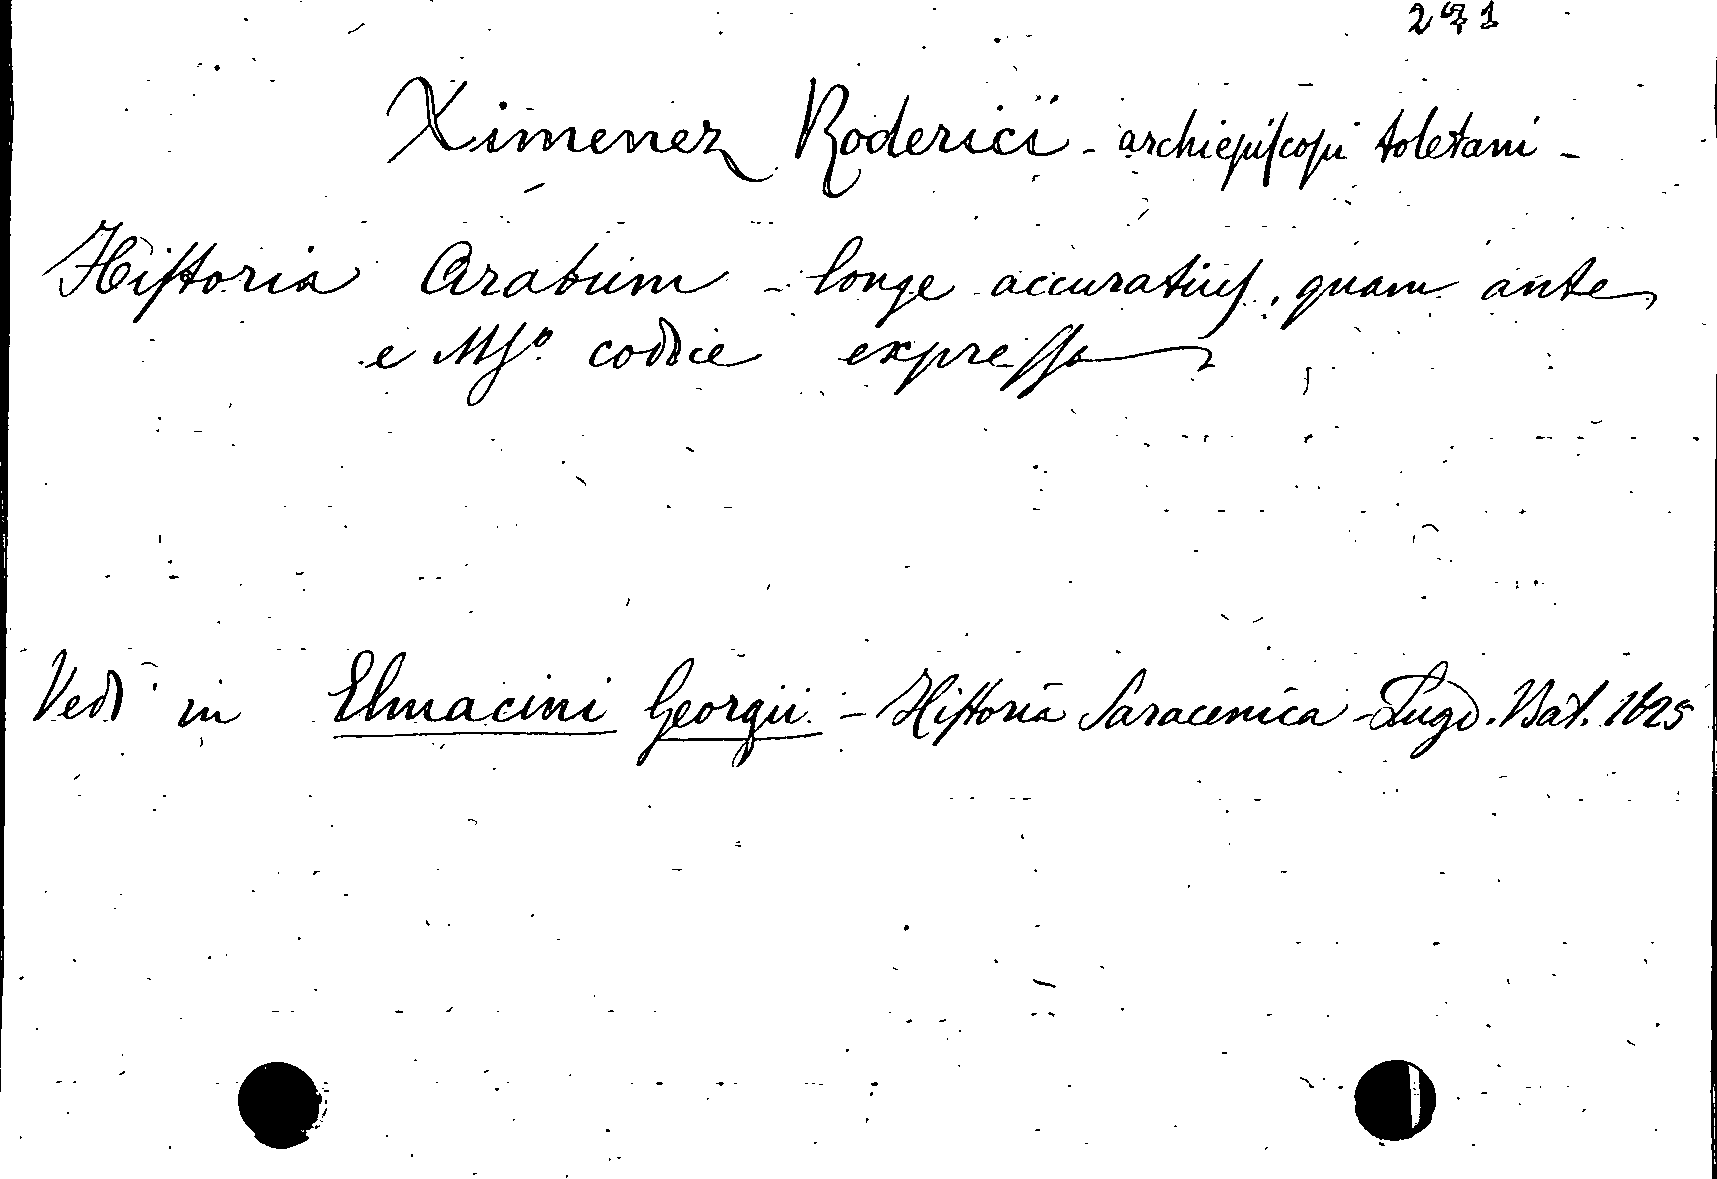 271
Ximenez Roderici - archiepiſcopi toletani -
Hiſtoria Arabum - longe accuratius, quam ante
e Mſº. codice expreſſa
Vedi in Elmacini Georgii - Hiſtoria Saracenica - Lugd. Bat. 1625